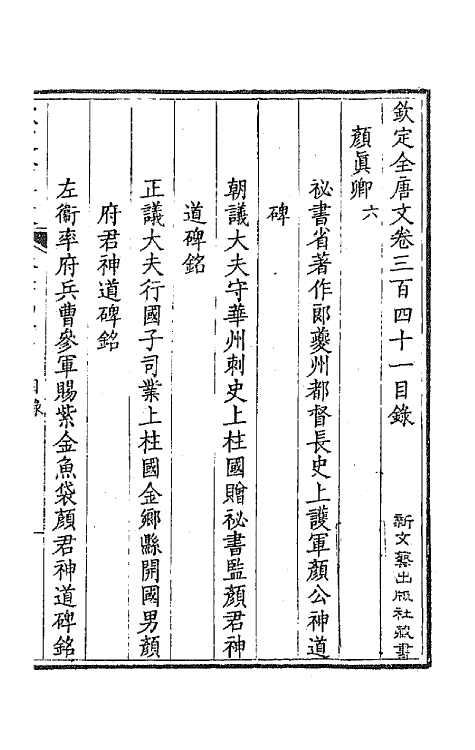 欽定全唐文卷三百四十一目錄
新文藝出版社藏書
顏眞卿六
祕書省著作郎夔州都督長史上護軍顏公神道
碑
朝議大夫守華州刺史上柱國贈祕書監顏君神
道碑銘
正議大夫行國子司業上柱國金鄉縣開國男顏
府君神道碑銘
左衞率府兵曹參軍賜紫金魚袋顏君神道碑銘